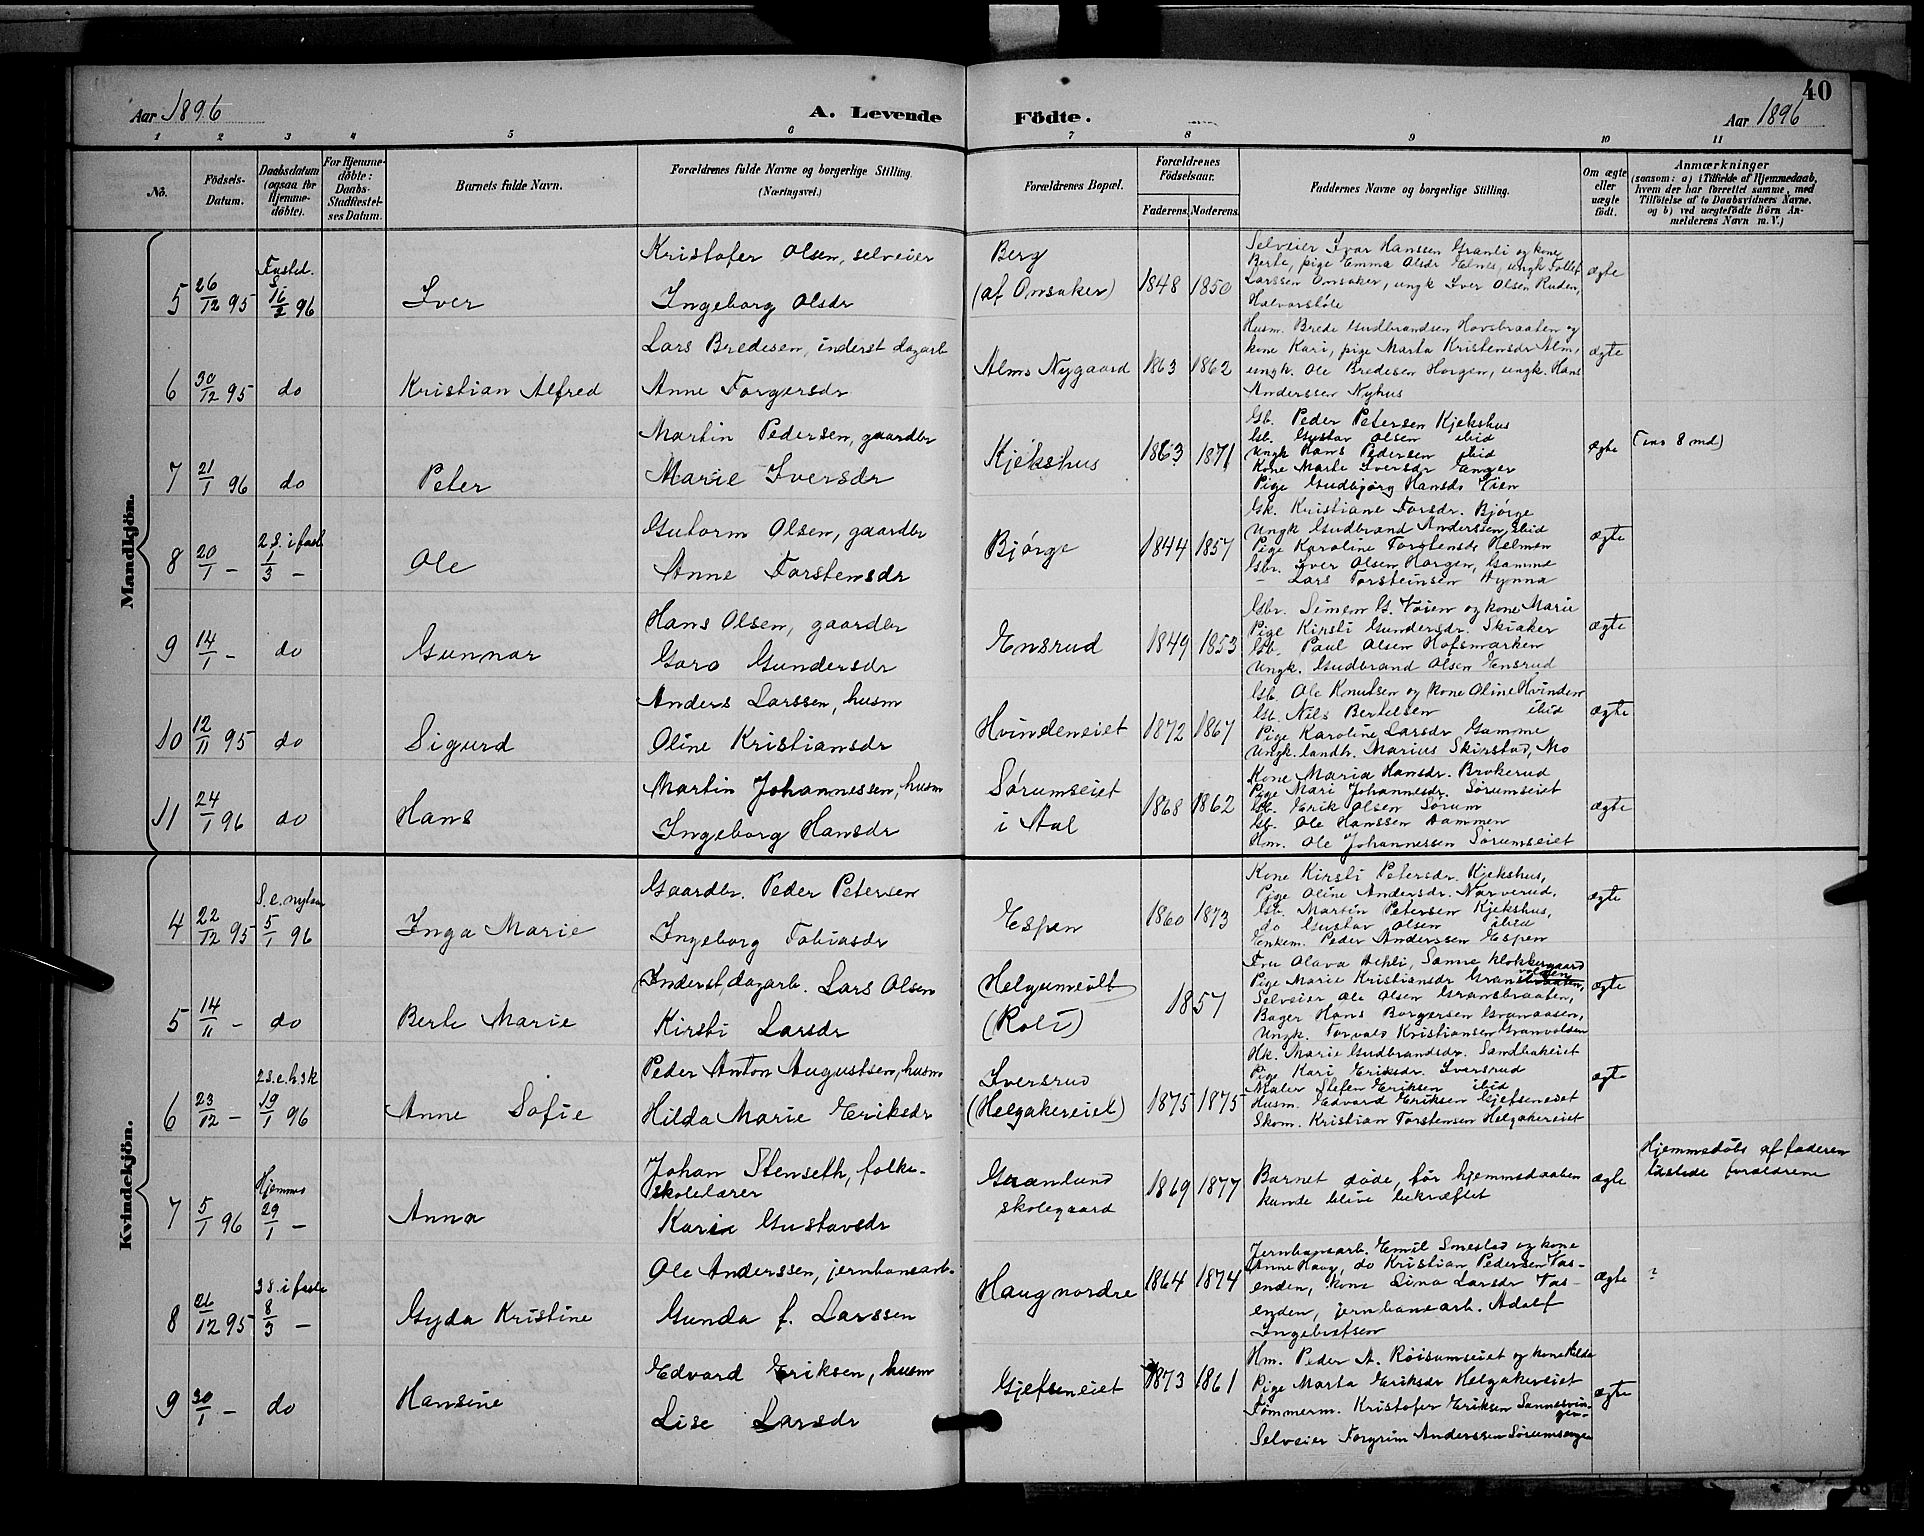 40
Aar 1896
A. Levende Födte.
Aar 1896
1 2 3 4 5 6 7 8 9 10 11
No.
Födsels-Datum.
Daabsdatum (ogsaa for Hjemme-döbte).
For Hjemme-döbte: Daabs-Stadfæstel-ses Datum.
Barnets fulde Navn.
Forældrenes fulde Navne og borgerlige Stilling.
(Næringsvei.)
Forældrenes Bopæl.
Forældrenes Födselsaar.
Faderens. Moderens.
Faddernes Navne og borgerlige Stilling.
Om ægte eller uægte födt.
Anmærkninger
(saasom: a) i Tilfælde af Hjemmedaab, hvem der har forrettet samme, med Tilföielse af to Daabsvidners Navne. og b) ved uægtefödte Börn An-melderens Navn m. V.)
Mandkjön.
5 26/12 95 Fastel. S 16/2 96 Iver
Kristofer Olsen, selveier
Ingeborg Olsdr
Berg
(af Onsaker)
1848 1850
Selveier Ivar Hanssen Granli og kone
Berte, pige Emma Olsdr Elnes, ungk Tollef
Larssen Onsaker, ungk Iver Olsen Ruden,
Halvorsböle
ægte
6 30/12 95 do Kristian Alfred
Lars Bredesen, inderst dagarb
Anne Torgersdr
Alms Nygaard 1863 1862
Husm. Brede Gudbrandsen Hovsbraaten og
kone Kari, pige Marta Kristensdr Alm,
ungk. Ole Bredesen Horgen, ungk. Hans
Anderssen Nyhus
ægte
7 21/1 96 do Peter
Martin Pedersen, gaardbr
Marie Iversdr
Kjekshus 1863 1871
Gb. Peder Petersen Kjekshus
Gb. Gustav Olsen ibid
Ungk Hans Pedersen ibid
Kone Marte Iversdr Enger
Pige Gudbjørg Hansdr Lien
ægte
8 md)
8 20/1 – 2 S. i faste 1/3 – Ole
Gutorm Olsen, gaardbr
Anne Torstensdr
Bjørge 1844 1857
Gk. Kristiane Torsdr. Bjørge
Ungk Gudbrand Anderssen, ibid
Pige Karoline Torstensdr Helmen
Gbr. Iver Olsen Horgen, Gamme
– Lars Torsteinsen Hynna
ægte
9 14/1 – do Gunnar
Hans Olsen, gaardbr
Goro Gundersdr
Ensrud 1849 1853
Gbr. Simen G. Vøien og kone Marie
Pige Kirsti Gundersdr. Skiaker
Gb. Paul Olsen Hofsmarken
Ungk. Gudbrand Olsen Ensrud
ægte
10 12/11 95 do Sigurd
Anders Larssen, husm
Oline Kristiansdr
Hvindeneiet 1872 1867
Gb. Ole Knutsen og kone Oline Hvinden
Gb. Nils Bertelsen ibid
Pige Karoline Larsdr Gamme
Ungk. landh. Marius Skirstad, Mo
ægte
11 24/1 96 do Hans
Martin Johannessen, husm
Ingeborg Hansdr
Sørumseiet
i Aal
1868 1862
Kone Maria Hansdr. Brokerud
Pige Mari Johannesdr. Sørumseiet
Gb. Erik Olsen Sørum
Gb. Ole Hanssen Hammen
Hm. Ole Johannessen Sørumseiet
ægte
Kvindekjön.
4 22/12 95 S. e. nytaar 5/1 96 Inga Marie
Gaardbr. Peder Petersen
Ingeborg Tobiasdr
Espen 1860 1873
Kone Kirsti Petersdr. Kjekshus,
Pige Oline Andersdr. Narverud,
Gb. Martin Petersen Kjekshus,
do Gustav Olsen ibid
Enkem. Peder Anderssen Espen
ægte
5 14/11 – do Berte Marie
Inderst, dagarb. Lars Olsen
Kirsti Larsdr
Helgum
(Roli)
1857
Fru Olava Aschli, Sanne klokkergaard
Pige Marie Kristiansdr Granvolden,
Selveier Ole Olsen Gransbraaten,
Bager Hans Borgersen Granaasen,
Ungk. Torvald Kristiansen Granvolden
ægte
6 23/12 – 2 S. e. h. 3 k 19/1 96 Anne Sofie
Peder Anton Augustsen, husm
Hilda Marie Eriksdr
Iversrud
(Helgakereiet)
1875 1875
Hk. Marie Gudbrandsdr. Sandbakeiet
Pige Kari Eriksdr. Iversrud
Maler Stefen Eriksen ibid
Husm. Edvard Eriksen Gjefseneiet
Skom. Kristian Torstensen Helgakereiet
ægte
7 5/1 96 Hjemme 29/1 – Anna
Johan Stenseth, folke-
skolelærer
Karie Gustavsdr
Granlund
skolegaard
1869 1877
Barnet døde, før hjemmedaaben
kunde blive bekræftet
ægte
Hjemmedøbt af faderen
forældrene
8 26/12 95 3 S. i faste 8/3 – Gyda Kristine
Ole Anderssen, jernbanearb.
Gunda f. Larssen
Haug nordre 1864 1874
Jernbanearb. Emil Smestad og kone
Anne Haug, do Kristian Pedersen Vas-
enden, kone Lina Larsdr Vas-
enden, jernbanearb. Adolf
Ingebretsen
ægte ?
9 30/1 – do Hansine
Edvard Eriksen, husm
Lise Larsdr
Gjefseneiet 1873 1861
Hm. Peder A. Röisumseiet og kone Hilda
Pige Marta Eriksdr Helgakereiet
Tømmerm. Kristofer Eriksen Sannesvin-
gen
Selveier Torgrim Anderssen Sørumsengen
ægte